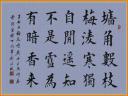 牆角數枝
梅凌寒獨
自開遥知
不是雪為
有暗香來